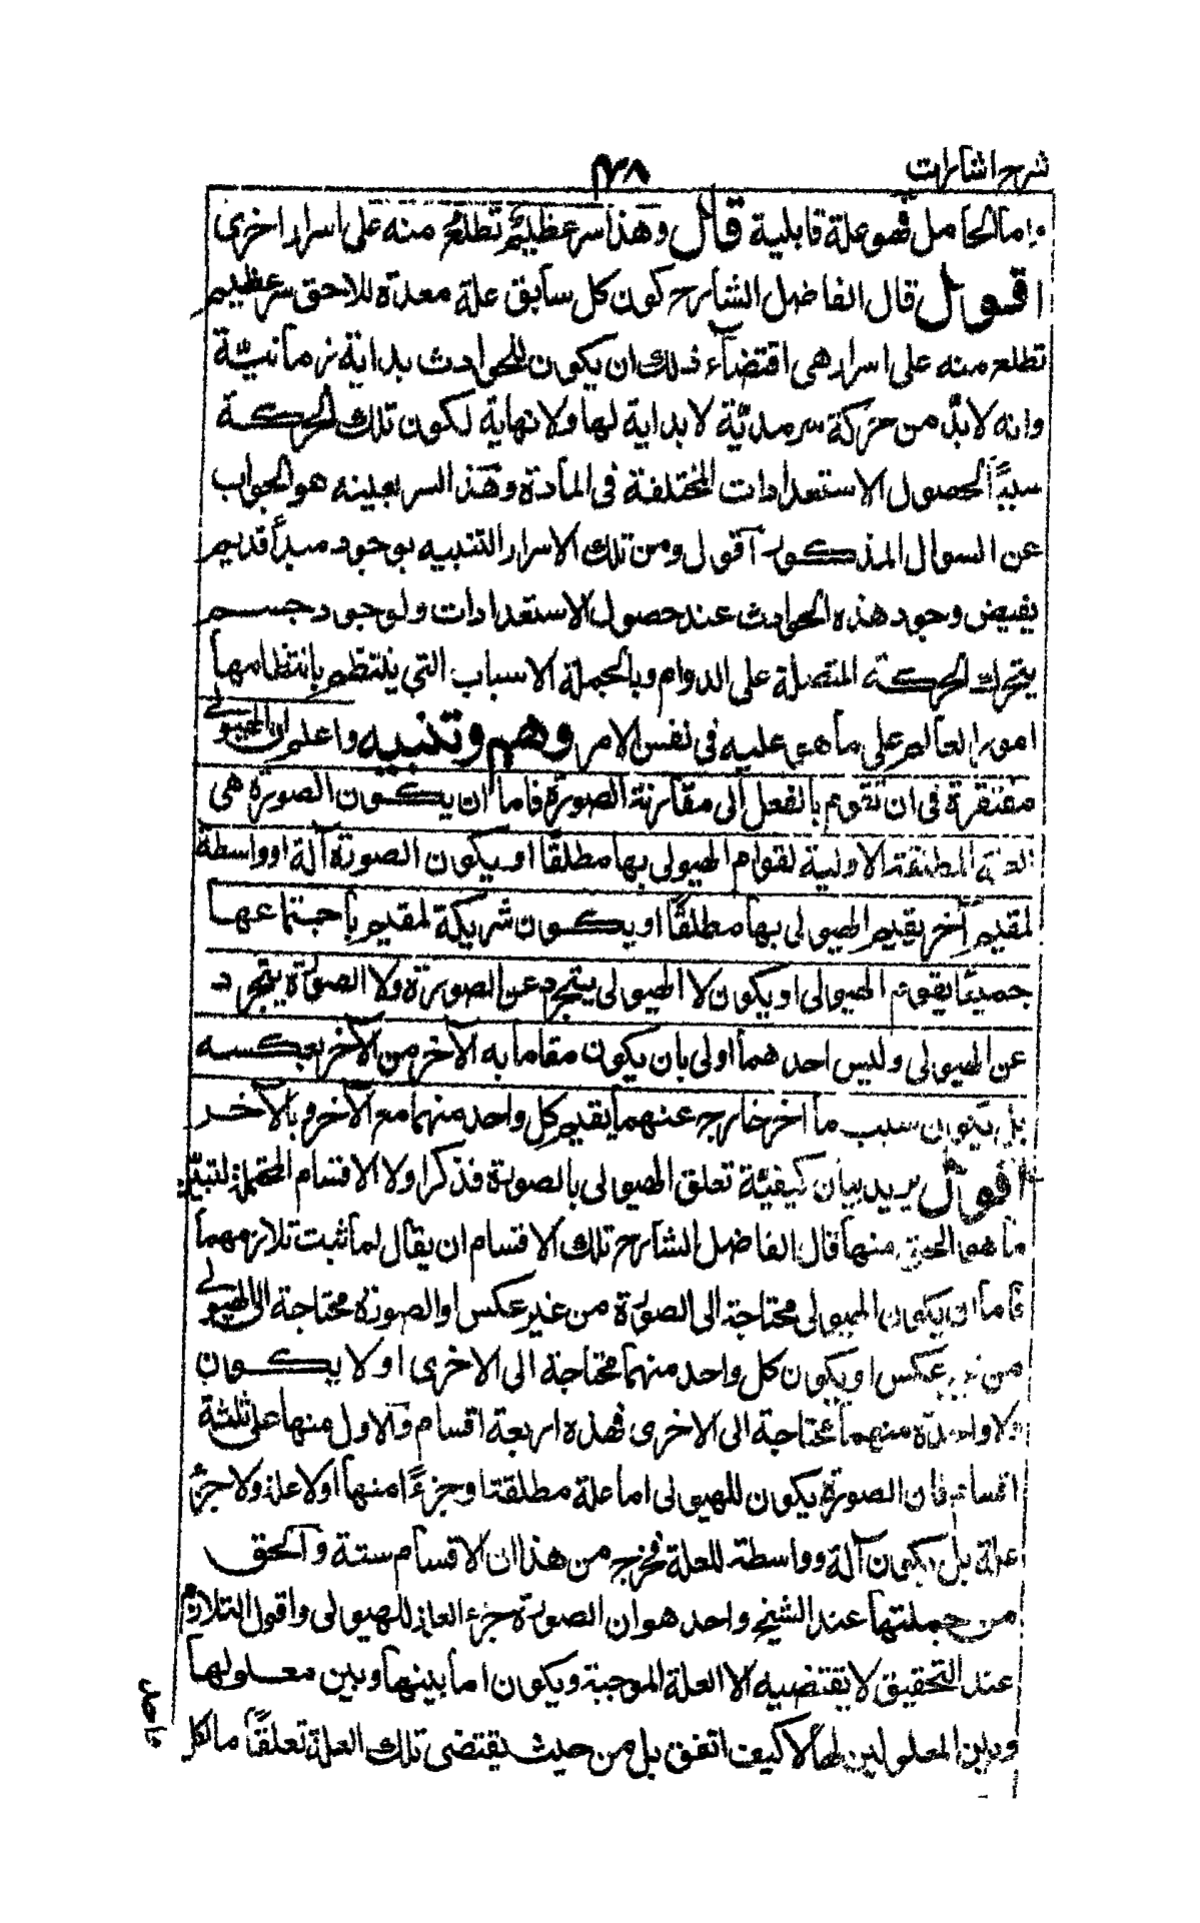 شرح اشارات
٣٨
واما الحامل فهو علة قابلية قال وهذا سر عظيم تطلع منه على اسرار اخرى
اقول قال الفاضل الشارح كون كل سابق علة معدة للاحق سر عظيم
تطلع منه على اسرار هى اقتضاء ذلك ان يكون للحوادث بداية زمانيّة
وانه لا بدّ من حركة سرمديّة لا بداية لها ولا نهاية لكون تلك الحركة
سببًا لحصول الاستعدادات المختلفة فى المادة وهذا السر بعينه هو الجواب
عن السوال المذكور اقول ومن تلك الاسرار التنبيه بوجود مبدأ قديم
يفيض وجود هذه الحوادث عند حصول الاستعدادات ولوجود جسم
يتحرك الحركة المتصلة على الدوام وبالجملة الاسباب التي ينتظم بانتظامها
امور العالم على ما هى عليه فى نفس الامر وهم وتنبيه واعلم ان الهيولى
مفتقرة فى ان تقوم بالفعل الى مقارنة الصورة فاما ان يكون الصورة هى
العلة المطلقة الاولية لقوام الهيولى بها مطلقًا او يكون الصورة آلة او واسطة
لمقيم آخر يقيم الهيولى بها مطلقًا او يكون شريكة لمقيم باجتماعها
جميعًا يقوم الهيولى او يكون لا الهيولى يتجرد عن الصورة ولا الصورة يتجرد
عن الهيولى وليس احدهما اولى بان يكون مقاما به الآخر من الآخر بعكسه
بل يكون سبب ما آخر خارج عنهما يقيم كل واحد منهما مع الآخر و بالآخر
اقول يريد بيان كيفيّة تعلق الهيولى بالصورة فذكر اولا الاقسام المحتملة لتبيّن
ما هو الحق منها قال الفاضل الشارح تلك الاقسام ان يقال لما ثبت تلازمهما
فاما ان يكون الهيولى محتاجة الى الصورة من غير عكس او الصورة محتاجة الى الهيولى
من غير عكس او يكون كل واحد منهما محتاجة الى الاخرى او لا يكون
ولا واحدة منهما محتاجة الى الاخرى فهذه اربعة اقسام والاول منها على ثلثة
اقسام فان الصورة يكون للهيولى اما علة مطلقة او جزءًا منها او لا علة ولا جزء
علة بل يكون آلة وواسطة للعلة فخرج من هذا ان الاقسام ستة والحق
من جملتها عند الشيخ واحد هو ان الصورة جزء العلة للهيولى واقول التلازم
عند التحقيق لا يقتضيه الا العلة الموجبة ويكون اما بينها وبين معلولها
وبين المعلولين لها لا كيف اتفق بل من حيث يقتضى تلك العلة تعلقًا ما لكل